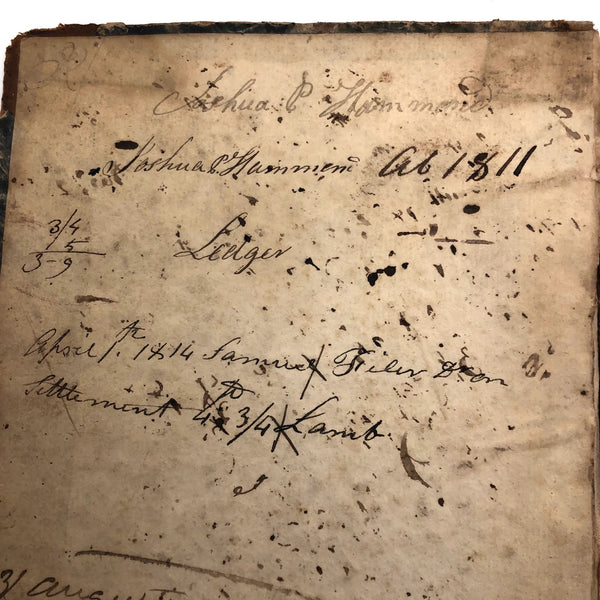 Joshua P Hammond
Joshua P Hammond AD 1811
3/4
5
3-9
Ledger
April 1th. 1814 Samuel Filer Dr on
Settlement to 3/4 Lamb
31 august